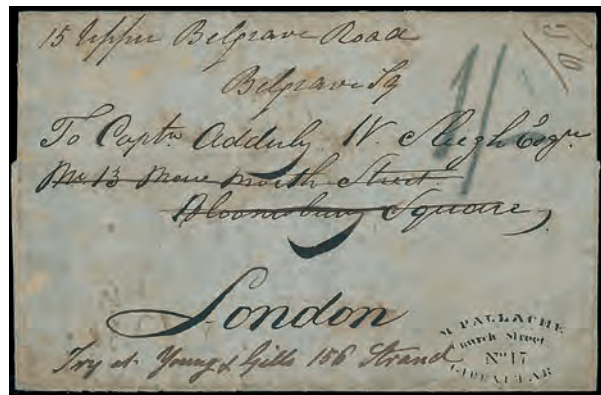 15 Upper Belgrave Road
Belgrave Sq
1/
To Captn Adderly W. Sleigh Esqre
13 North Street
Bloomsbury Square,
London
Try at Young & Gills 156 Strand
M PALLACHE
Church Street
No 17
GIBRALTAR